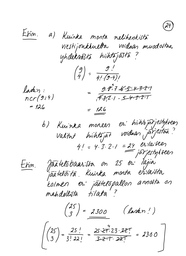 29
Esim. a) Kuinka monta nelihenkistä
viestijoukkuetta voidaan muodostaa
yhdeksästä hiihtäjästä?
(9 4) = 9! / 4!(9-4)!
laskin:
ncr(9,4)
= 126
= 9·8·7·6·5·4·3·2·1 / 4·3·2·1·5·4·3·2·1
= 126
b) Kuinka moneen eri hiihtojärjestykseen
valitut hiihtäjät voidaan järjestää?
4! = 4·3·2·1 = 24 erilaiseen
järjestykseen
Esim. Jäätelöbaarissa on 25 eri lajia
jäätelöä. Kuinka monta erilaista
kolmen eri jäätelöpallon annosta on
mahdollista tilata?
(25 3) = 2300 (laskin!)
[(25 3) = 25! / 3!·22! = 25·24·23·22! / 3·2·1·22! = 2300]